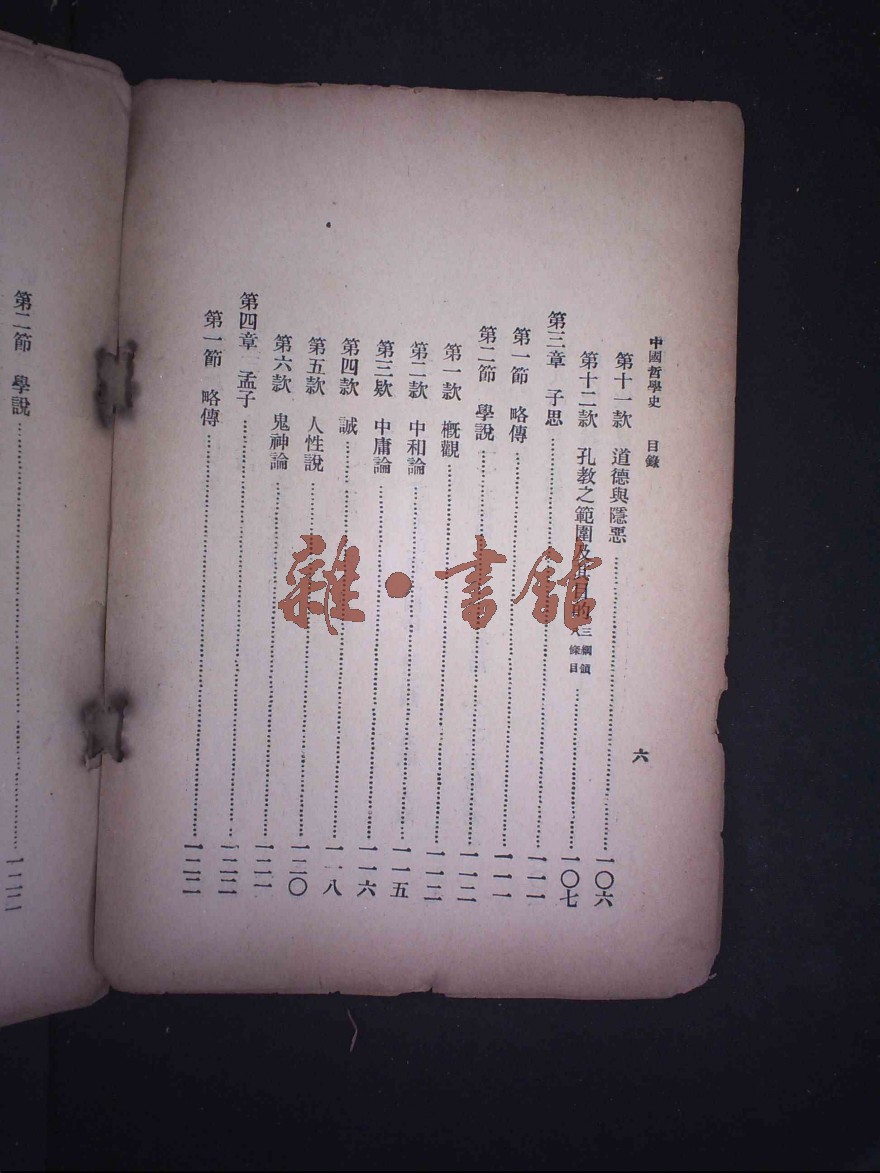 中國哲學史 目錄
六
第十一款 道德與隱惡……一〇六
第十二款 孔教之範圍及其目的 三綱領 八條目……一〇七
第三章 子思……一一一
第一節 略傳……一一一
第二節 學說……一一二
第一款 概觀……一一二
第二款 中和論……一一五
第三款 中庸論……一一六
第四款 誠……一一八
第五款 人性說……一二〇
第六款 鬼神論……一二一
第四章 孟子……一二二
第一節 略傳……一二二
第二節 學說……
雜·書館